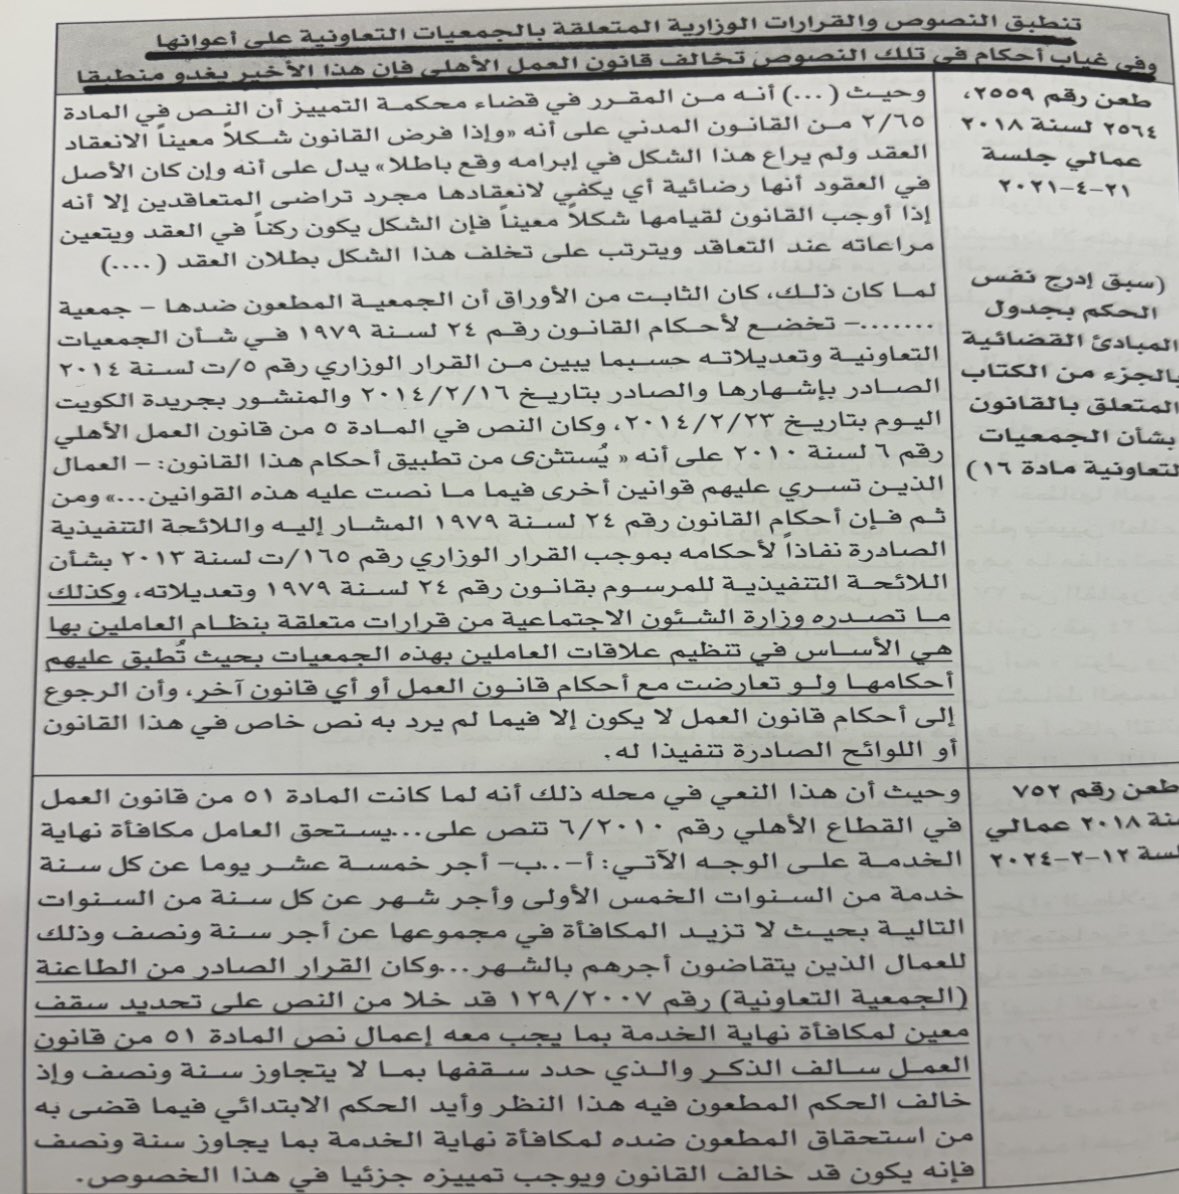 تنطبق النصوص والقرارات الوزارية المتعلقة بالجمعيات التعاونية على أعوانها
وفي غياب أحكام في تلك النصوص تخالف قانون العمل الأهلي فإن هذا الأخير يغدو منطبقا
طعن رقم ٢٥٥٩،
٢٥٦٤ لسنة ٢٠١٨
عمالي جلسة
٢١-٤-٢٠٢١
(سبق إدرج نفس
الحكم بجدول
المبادئ القضائية
بالجزء من الكتاب
المتعلق بالقانون
بشأن الجمعيات
لتعاونية مادة ١٦)
وحيث (...) أنه من المقرر في قضاء محكمة التمييز أن النص في المادة
٢/٦٥ من القانون المدني على أنه «وإذا فرض القانون شكلاً معيناً الانعقاد
العقد ولم يراع هذا الشكل في إبرامه وقع باطلا» يدل على أنه وإن كان الأصل
في العقود أنها رضائية أي يكفي لانعقادها مجرد تراضى المتعاقدين إلا أنه
إذا أوجب القانون لقيامها شكلاً معيناً فإن الشكل يكون ركناً في العقد ويتعين
مراعاته عند التعاقد ويترتب على تخلف هذا الشكل بطلان العقد (....)
لما كان ذلك، كان الثابت من الأوراق أن الجمعية المطعون ضدها – جمعية
.......– تخضع لأحكام القانون رقم ٢٤ لسنة ١٩٧٩ في شأن الجمعيات
التعاونية وتعديلاته حسبما يبين من القرار الوزاري رقم ٥/ت لسنة ٢٠١٤
الصادر بإشهارها والصادر بتاريخ ٢٠١٤/٢/١٦ والمنشور بجريدة الكويت
اليوم بتاريخ ٢٠١٤/٢/٢٣، وكان النص في المادة ٥ من قانون العمل الأهلي
رقم ٦ لسنة ٢٠١٠ على أنه « يُستثنى من تطبيق أحكام هذا القانون: – العمال
الذين تسري عليهم قوانين أخرى فيما ما نصت عليه هذه القوانين...» ومن
ثم فإن أحكام القانون رقم ٢٤ لسنة ١٩٧٩ المشار إليه واللائحة التنفيذية
الصادرة نفاذاً لأحكامه بموجب القرار الوزاري رقم ١٦٥/ت لسنة ٢٠١٣ بشأن
اللائحة التنفيذية للمرسوم بقانون رقم ٢٤ لسنة ١٩٧٩ وتعديلاته، وكذلك
ما تصدره وزارة الشئون الاجتماعية من قرارات متعلقة بنظام العاملين بها
هي الأساس في تنظيم علاقات العاملين بهذه الجمعيات بحيث تُطبق عليهم
أحكامها ولو تعارضت مع أحكام قانون العمل أو أي قانون آخر، وأن الرجوع
إلى أحكام قانون العمل لا يكون إلا فيما لم يرد به نص خاص في هذا القانون
أو اللوائح الصادرة تنفيذا له.
طعن رقم ٧٥٢
سنة ٢٠١٨ عمالي
لسة ١٢-٢-٢٠٢٤
وحيث أن هذا النعي في محله ذلك أنه لما كانت المادة ٥١ من قانون العمل
في القطاع الأهلي رقم ٦/٢٠١٠ تنص على...يستحق العامل مكافأة نهاية
الخدمة على الوجه الآتي: أ-..ب- أجر خمسة عشر يوما عن كل سنة
خدمة من السنوات الخمس الأولى وأجر شهر عن كل سنة من السنوات
التالية بحيث لا تزيد المكافأة في مجموعها عن أجر سنة ونصف وذلك
للعمال الذين يتقاضون أجرهم بالشهر...وكان القرار الصادر من الطاعنة
(الجمعية التعاونية) رقم ١٢٩/٢٠٠٧ قد خلا من النص على تحديد سقف
معين لمكافأة نهاية الخدمة بما يجب معه إعمال نص المادة ٥١ من قانون
العمل سالف الذكر والذي حدد سقفها بما لا يتجاوز سنة ونصف وإذ
خالف الحكم المطعون فيه هذا النظر وأيد الحكم الابتدائي فيما قضى به
من استحقاق المطعون ضده لمكافأة نهاية الخدمة بما يجاوز سنة ونصف
فإنه يكون قد خالف القانون ويوجب تمييزه جزئيا في هذا الخصوص.